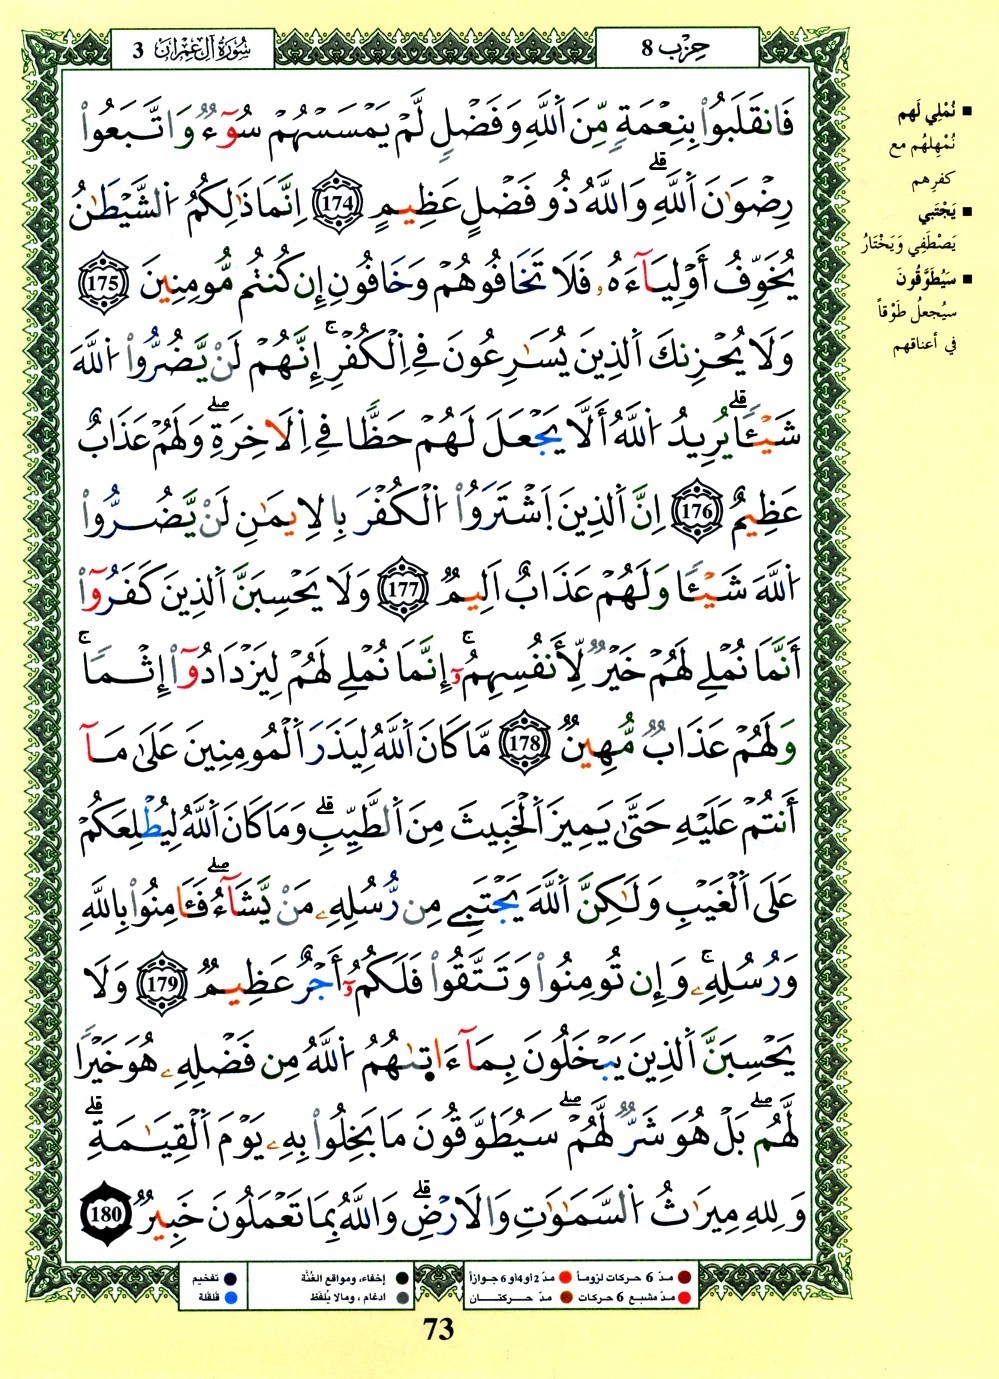 سُورَةُ آلِ عِمْرَانَ 3
حِزْب 8
فَانقَلَبُواْ بِنِعْمَةٍ مِّنَ اَ۬للَّهِ وَفَضْلٍ لَّمْ يَمْسَسْهُمْ سُوٓءٌ وَاتَّبَعُواْ
رِضْوَٰنَ اَ۬للَّهِ وَاللَّهُ ذُو فَضْلٍ عَظِيمٍ 174 اِنَّمَا ذَٰلِكُمُ اُ۬لشَّيْطَٰنُ
يُخَوِّفُ أَوْلِيَآءَهُۥ فَلَا تَخَافُوهُمْ وَخَافُونِ إِن كُنتُم مُّومِنِينَ 175
وَلَا يُحْزِنكَ اَ۬لذِينَ يُسَٰرِعُونَ فِي اِ۬لْكُفْرِ إِنَّهُمْ لَنْ يَّضُرُّواْ اُ۬للَّهَ
شَيْـٔاً يُرِيدُ اُ۬للَّهُ أَلَّا يَجْعَلَ لَهُمْ حَظّاً فِي اِ۬لَاخِرَةِ وَلَهُمْ عَذَابٌ
عَظِيمٌ 176 اِنَّ اَ۬لذِينَ اَ۪شْتَرَوُاْ اُ۬لْكُفْرَ بِالِايمَٰنِ لَنْ يَّضُرُّواْ
اُ۬للَّهَ شَيْـٔاً وَلَهُمْ عَذَابٌ اَلِيمٌ 177 وَلَا يَحْسِبَنَّ اَ۬لذِينَ كَفَرُوٓاْ
أَنَّمَا نُمْلِے لَهُمْ خَيْرٌ لِّأَنفُسِهِمُۥٓ إِنَّمَا نُمْلِے لَهُمْ لِيَزْدَادُوٓاْ إِثْماً
وَلَهُمْ عَذَابٌ مُّهِينٌ 178 مَّا كَانَ اَ۬للَّهُ لِيَذَرَ اَ۬لْمُومِنِينَ عَلَىٰ مَآ
أَنتُمْ عَلَيْهِ حَتَّىٰ يَمِيزَ اَ۬لْخَبِيثَ مِنَ اَ۬لطَّيِّبِ وَمَا كَانَ اَ۬للَّهُ لِيُطْلِعَكُمْ
عَلَى اَ۬لْغَيْبِ وَلَٰكِنَّ اَ۬للَّهَ يَجْتَبِے مِن رُّسُلِهِۦ مَنْ يَّشَآءُ فَـَٔامِنُواْ بِاللَّهِ
وَرُسُلِهِۦ وَإِن تُومِنُواْ وَتَتَّقُواْ فَلَكُمُۥٓ أَجْرٌ عَظِيمٌ 179 وَلَا
يَحْسِبَنَّ اَ۬لذِينَ يَبْخَلُونَ بِمَآ ءَاتٜىٰهُمُ اُ۬للَّهُ مِن فَضْلِهِۦ هُوَ خَيْراً
لَّهُم بَلْ هُوَ شَرٌّ لَّهُمْ سَيُطَوَّقُونَ مَا بَخِلُواْ بِهِۦ يَوْمَ اَ۬لْقِيَٰمَةِ
وَلِلهِ مِيرَٰثُ اُ۬لسَّمَٰوَٰتِ وَالَارْضِ وَاللَّهُ بِمَا تَعْمَلُونَ خَبِيرٌ 180
نُمْلِي لَهم
نُمْهِلهُم مع
كفرِهم
يَجْتَبي
يَصْطَفِي وَيَخْتَارُ
سَيُطَوَّقُونَ
سيُجعلُ طَوْقاً
في أعناقهم
مدّ 6 حركات لزوماً
مدّ 2 أو 4 أو 6 جوازاً
إخفاء، ومواقع الغُنَّة
تفخيم
مدّ مشبع 6 حركات
مدّ حركتــان
ادغام ، ومالا يُلفَظ
قلقلة
73